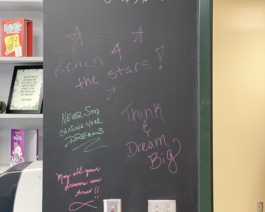 Reach 4
the stars!
NEVER STOP
CHASING YOUR
DREAMS
Think
&
Dream
Big
May all your
dreams come
true!!